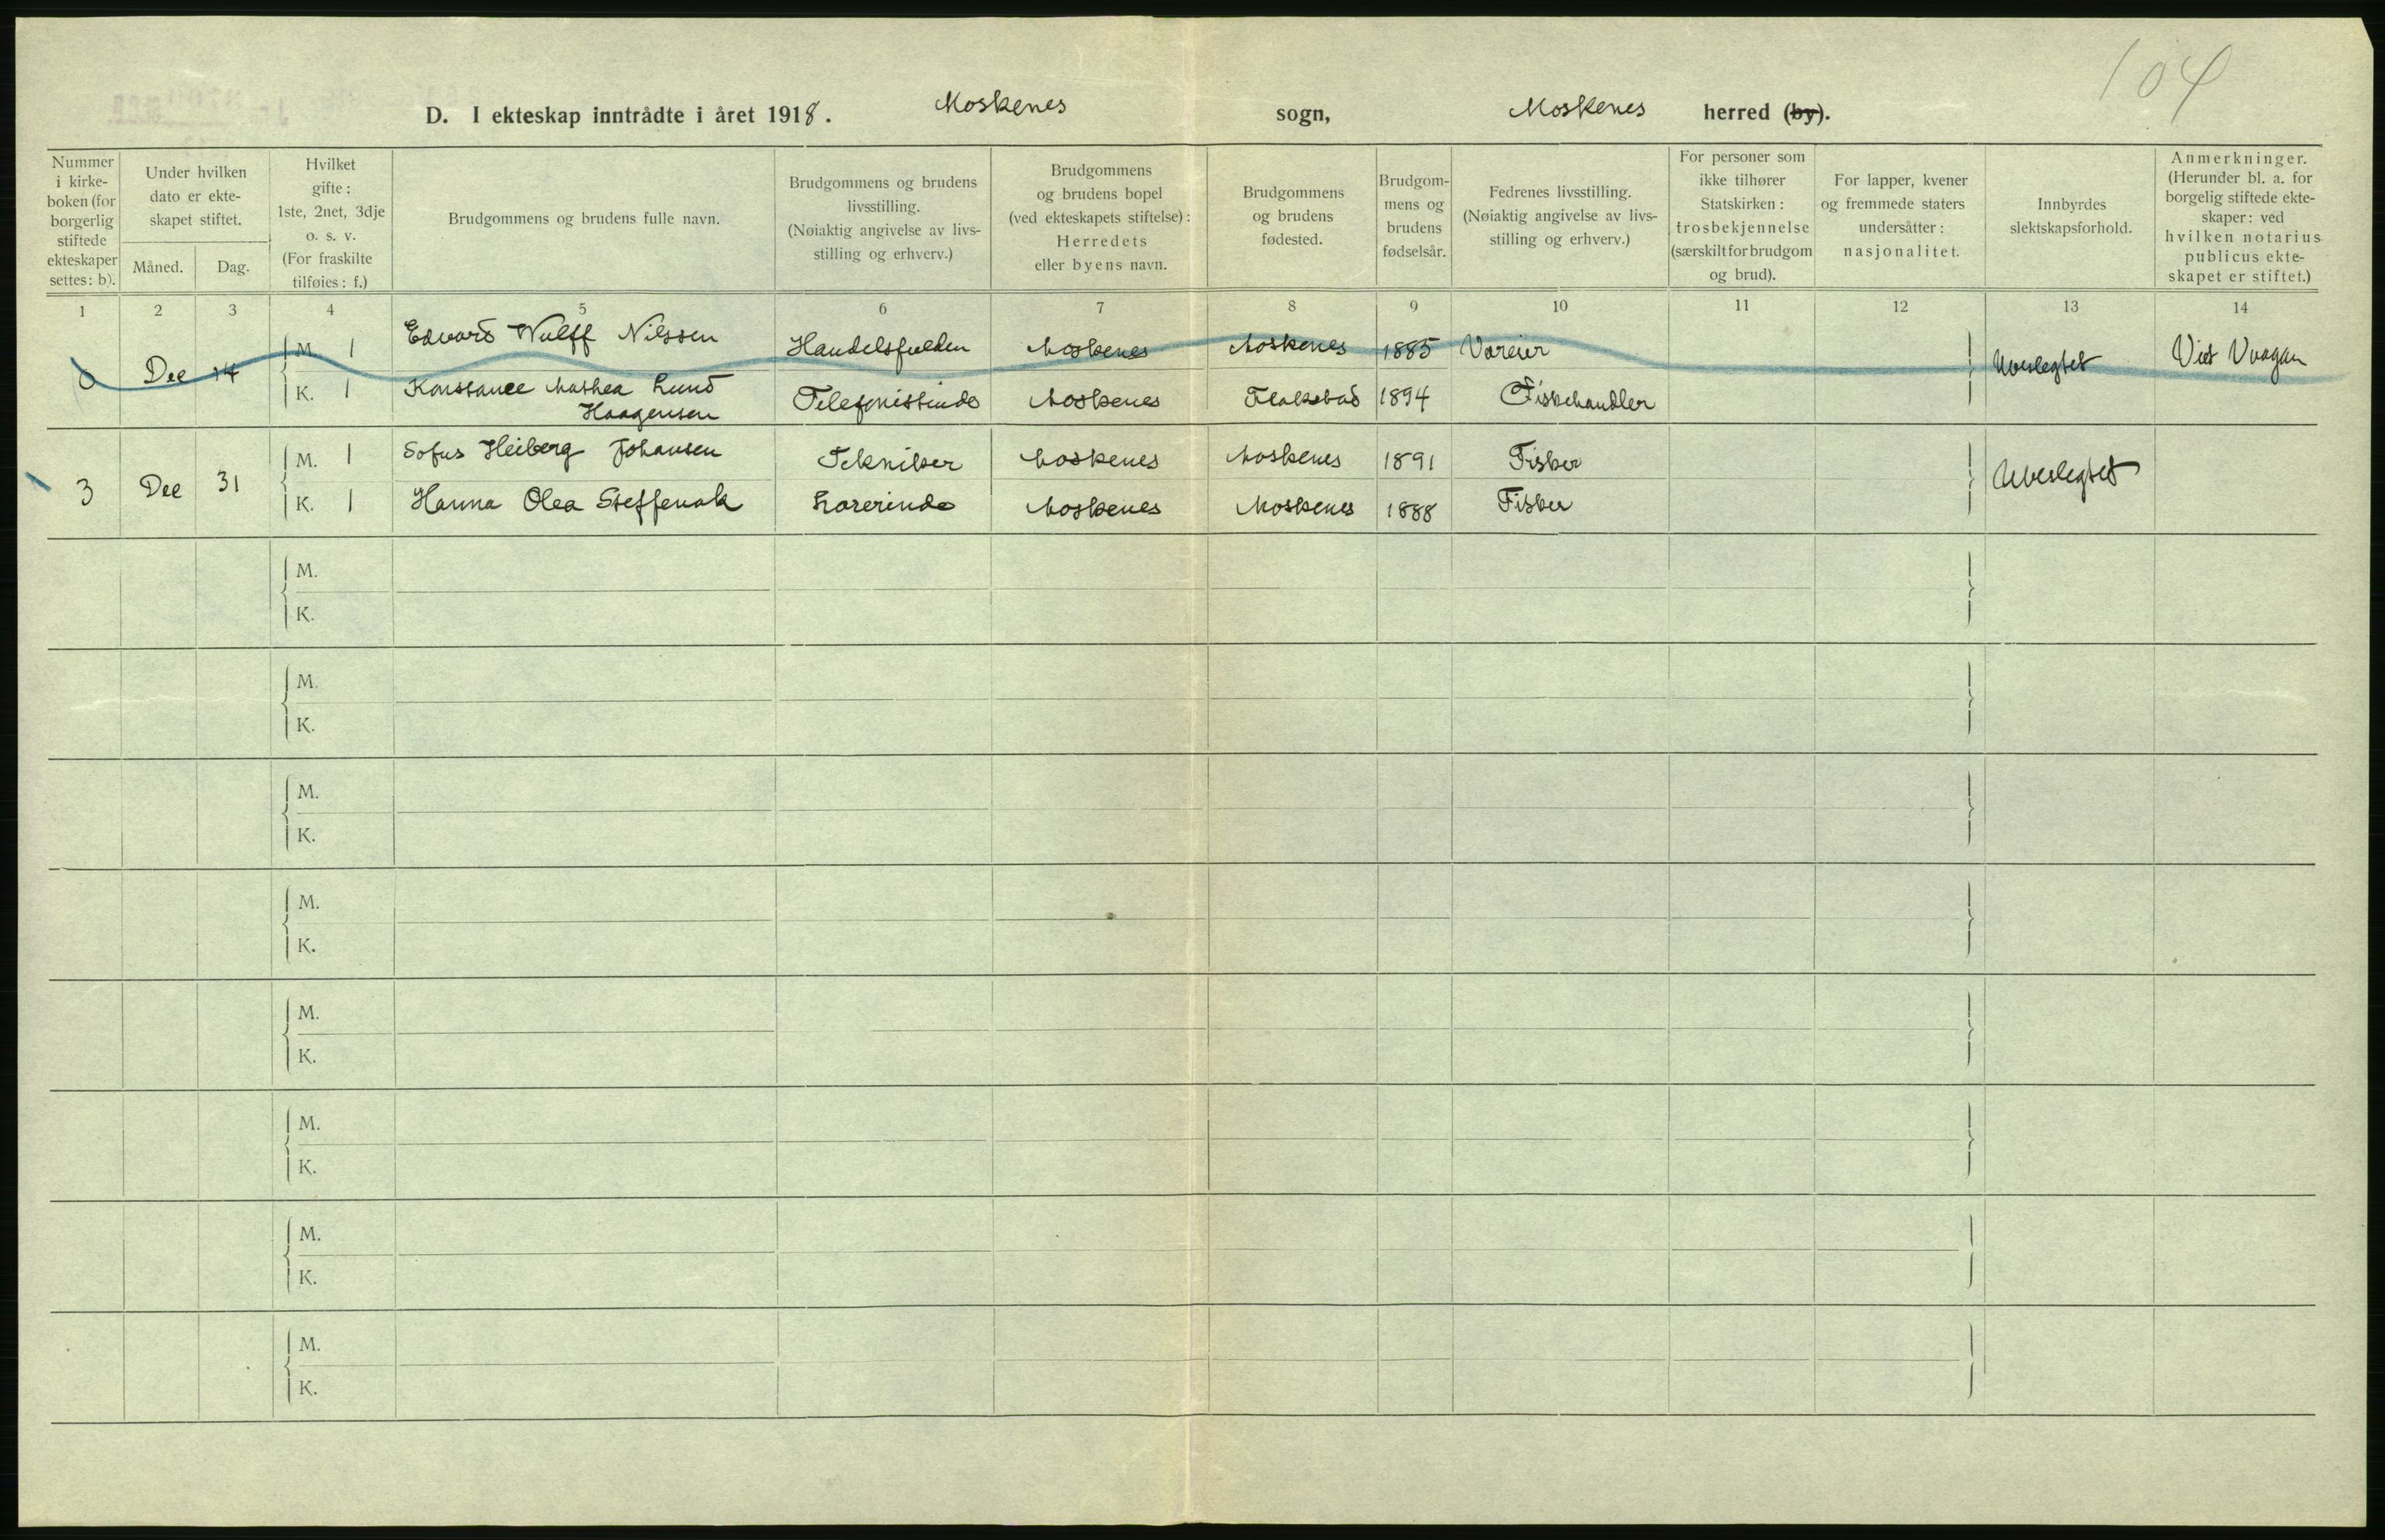 104
D. I ekteskap inntrådte i året 1918. Moskenes sogn, Moskenes herred (by).
Nummer i kirke-boken (for borgerlig stiftede ekteskaper settes: b).
Under hvilken dato er ekte-skapet stiftet.
Måned.
Dag.
Hvilket gifte: 1ste, 2net, 3dje o. s. v. (For fraskilte tilføies: f.)
Brudgommens og brudens fulle navn.
Brudgommens og brudens livsstilling. (Nøiaktig angivelse av livs-stilling og erhverv.)
Brudgommens og brudens bopel (ved ekteskapets stiftelse): Herredets eller byens navn.
Brudgommens og brudens fødested.
Brudgom-mens og brudens fødselsår.
Fedrenes livsstilling. (Nøiaktig angivelse av livs-stilling og erhverv.)
For personer som ikke tilhører Statskirken: trosbekjennelse (særskilt for brudgom og brud).
For lapper, kvener og fremmede staters undersåtter: nasjonalitet.
Innbyrdes slektskapsforhold.
Anmerkninger. (Herunder bl. a. for borgelig stiftede ekte-skaper: ved hvilken notarius publicus ekte-skapet er stiftet.)
1 2 3 4 5 6 7 8 9 10 11 12 13 14
0 Dec 14 M. 1 Edvard Wulff Nilssen Moskenes Moskenes 1885 Væreier Ubeslegtet Vaagan
K. 1 Konstance Mathea Lund Haagensen Telefonistinde Moskenes Flakstad 1894 Fiskehandler
3 Dec 31 M. 1 Sofus Heiberg Johansen Tekniker Moskenes Moskenes 1891 Fisker Ubeslegtet
K. 1 Hanna Olea Steffenak Lærerinde Moskenes Moskenes 1888 Fisker
M.
K.
M.
K.
M.
K.
M.
K.
M.
K.
M.
K.
M.
K.
M.
K.